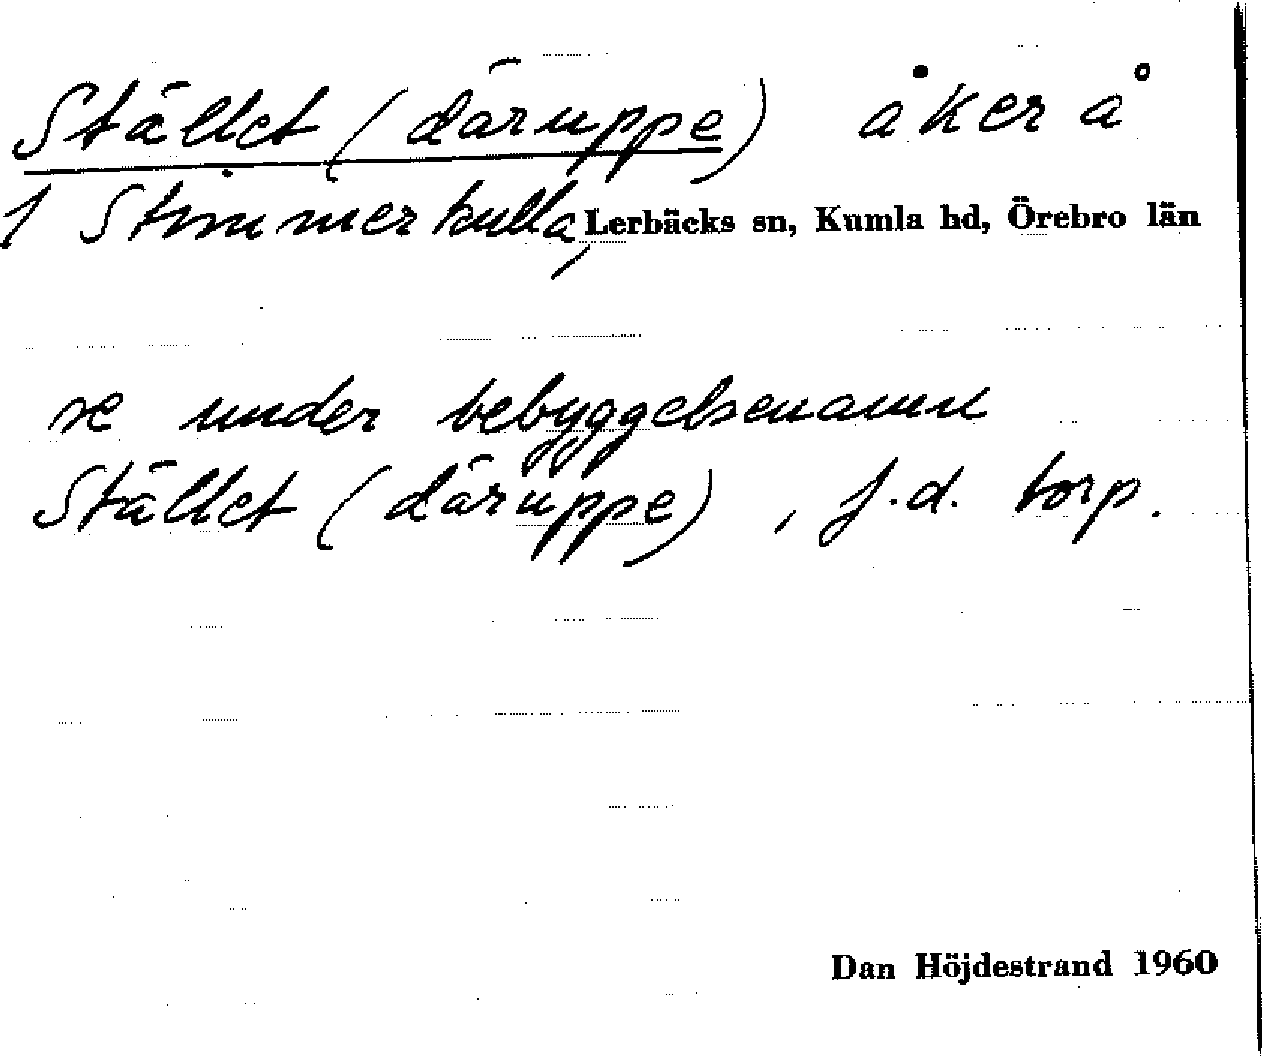 Stället (däruppe) åker å
1 Stimmerkulla, Lerbäcks sn, Kumla hd, Örebro län
se under bebyggelsenamn
Stället (däruppe), f.d. torp.
Dan Höjdestrand 1960